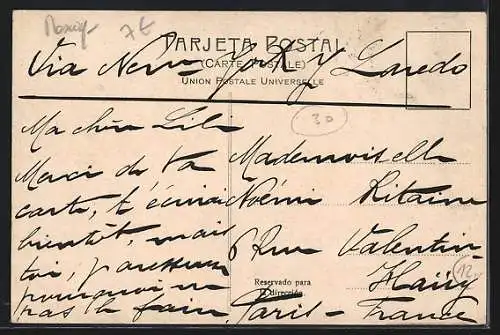 7€
TARJETA POSTAL
(CARTE POSTALE)
UNION POSTALE UNIVERSELLE
Via New-York y Laredo
30
Ma chère Lili
Merci de ta
carte, t'écrirai
bientôt, mais
toi, paresseuse
pourquoi ne
pas le faire
Mademoiselle
Noémi Ritaine
6 Rue Valentin
Haüy
12
Reservado para
la dirección
Paris - France